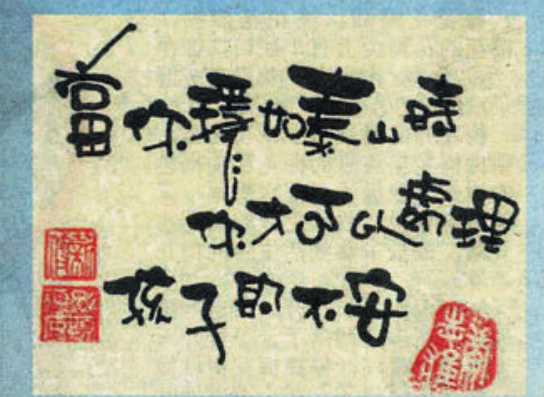 當你穩如泰山時
你才可以理
孩子的不安